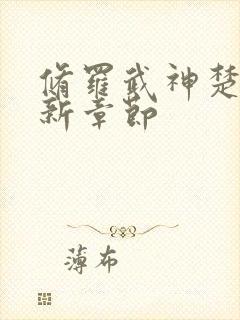 脩羅武神楚
新章節
薄布